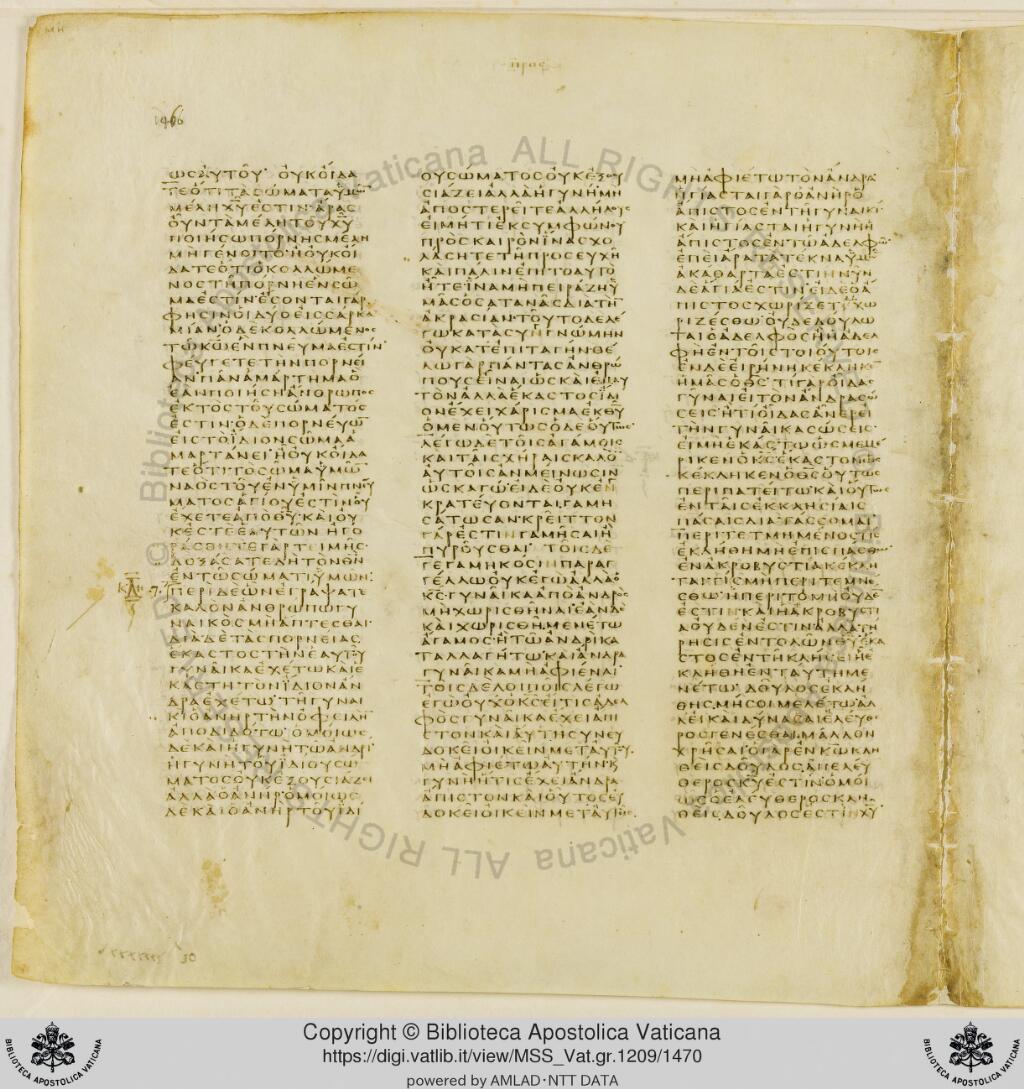 1466
ΠΡΟΣ
ΩΣΑΥΤΟΥ ΟΥΚΟΙΔΑ
ΤΕΟΤΙΤΑΣΩΜΑΤΑΥΜΩ
ΜΕΛΗΧΥΕΣΤΙΝ ΑΡΑΣ
ΟΥΝΤΑΜΕΛΗΤΟΥΧΥ
ΠΟΙΗΣΩΠΟΡΝΗΣΜΕΛΗ
ΜΗΓΕΝΟΙΤΟ ΗΟΥΚΟΙ
ΔΑΤΕΟΤΙΟΚΟΛΛΩΜΕ
ΝΟΣΤΗΠΟΡΝΗΕΝΣΩ
ΜΑΕΣΤΙΝ ΕΣΟΝΤΑΙΓΑΡ
ΦΗΣΙΝΟΙΔΥΟΕΙΣΣΑΡΚΑ
ΜΙΑΝ ΟΔΕΚΟΛΛΩΜΕΝΟΣ
ΤΩΚΩΕΝΠΝΕΥΜΑΕΣΤΙΝ
ΦΕΥΓΕΤΕΤΗΝΠΟΡΝΕΙ
ΑΝ ΠΑΝΑΜΑΡΤΗΜΑΟ
ΕΑΝΠΟΙΗΣΗΑΝΘΡΩΠΟΣ
ΕΚΤΟΣΤΟΥΣΩΜΑΤΟΣ
ΕΣΤΙΝ ΟΔΕΠΟΡΝΕΥΩ
ΕΙΣΤΟΙΔΙΟΝΣΩΜΑΑ
ΜΑΡΤΑΝΕΙ ΗΟΥΚΟΙΔΑ
ΤΕΟΤΙΤΟΣΩΜΑΥΜΩ
ΝΑΟΣΤΟΥΕΝΥΜΙΝΠΝΕΥ
ΜΑΤΟΣΑΓΙΟΥΕΣΤΙΝΟΥ
ΕΧΕΤΕΑΠΟΘΥ ΚΑΙΟΥ
ΚΕΣΤΕΕΑΥΤΩΝ ΗΓΟ
ΡΑΣΘΗΤΕΓΑΡΤΕΙΜΗΣ
ΔΟΞΑΣΑΤΕΔΗΤΟΝΘΝ
ΕΝΤΩΣΩΜΑΤΙΥΜΩΝ
ΠΕΡΙΔΕΩΝΕΓΡΑΨΑΤΕ
ΚΑΛΟΝΑΝΘΡΩΠΩΓΥ
ΝΑΙΚΟΣΜΗΑΠΤΕΣΘΑΙ
ΔΙΑΔΕΤΑΣΠΟΡΝΕΙΑΣ
ΕΚΑΣΤΟΣΤΗΝΕΑΥΤΟΥ
ΓΥΝΑΙΚΑΕΧΕΤΩΚΑΙΕ
ΚΑΣΤΗΤΟΝΙΔΙΟΝΑΝ
ΔΡΑΕΧΕΤΩ ΤΗΓΥΝΑΙ
ΚΙΟΑΝΗΡΤΗΝΟΦΕΙΛΗ
ΑΠΟΔΙΔΟΤΩ ΟΜΟΙΩΣ
ΔΕΚΑΙΗΓΥΝΗΤΩΑΝΔΡΙ
ΗΓΥΝΗΤΟΥΙΔΙΟΥΣΩ
ΜΑΤΟΣΟΥΚΕΞΟΥΣΙΑΖΕΙ
ΑΛΛΑΟΑΝΗΡ ΟΜΟΙΩΣ
ΔΕΚΑΙΟΑΝΗΡΤΟΥΙΔΙ
ΟΥΣΩΜΑΤΟΣΟΥΚΕΞΟΥ
ΣΙΑΖΕΙΑΛΛΑΗΓΥΝΗ ΜΗ
ΑΠΟΣΤΕΡΕΙΤΕΑΛΛΗΛΟΥΣ
ΕΙΜΗΤΙΕΚΣΥΜΦΩΝΟΥ
ΠΡΟΣΚΑΙΡΟΝΙΝΑΣΧΟ
ΛΑΣΗΤΕΤΗΠΡΟΣΕΥΧΗ
ΚΑΙΠΑΛΙΝΕΠΙΤΟΑΥΤΟ
ΗΤΕΙΝΑΜΗΠΕΙΡΑΖΗΥ
ΜΑΣΟΣΑΤΑΝΑΣΔΙΑΤΗ
ΑΚΡΑΣΙΑΝ ΤΟΥΤΟΔΕΛΕ
ΓΩΚΑΤΑΣΥΓΓΝΩΜΗΝ
ΟΥΚΑΤΕΠΙΤΑΓΗΝΘΕ
ΛΩΓΑΡΠΑΝΤΑΣΑΝΘΡΩ
ΠΟΥΣΕΙΝΑΙΩΣΚΑΙΕΜΑΥ
ΤΟΝΑΛΛΑΕΚΑΣΤΟΣΙΔΙ
ΟΝΕΧΕΙΧΑΡΙΣΜΑΕΚΘΥ
ΟΜΕΝΟΥΤΩΣΟΔΕΟΥΤΩΣ
ΛΕΓΩΔΕΤΟΙΣΑΓΑΜΟΙΣ
ΚΑΙΤΑΙΣΧΗΡΑΙΣΚΑΛΟ
ΑΥΤΟΙΣΑΝΜΕΙΝΩΣΙΝ
ΩΣΚΑΓΩ ΕΙΔΕΟΥΚΕΝ
ΚΡΑΤΕΥΟΝΤΑΙ ΓΑΜΗ
ΣΑΤΩΣΑΝ ΚΡΕΙΤΤΟΝ
ΓΑΡΕΣΤΙΝΓΑΜΗΣΑΙΗ
ΠΥΡΟΥΣΘΑΙ ΤΟΙΣΔΕ
ΓΕΓΑΜΗΚΟΣΙΝΠΑΡΑΓ
ΓΕΛΛΩΟΥΚΕΓΩΑΛΛΑΟ
ΚΣΓΥΝΑΙΚΑΑΠΟΑΝΔΡΟΣ
ΜΗΧΩΡΙΣΘΗΝΑΙ ΕΑΝΔΕ
ΚΑΙΧΩΡΙΣΘΗΜΕΝΕΤΩ
ΑΓΑΜΟΣ ΗΤΩΑΝΔΡΙΚΑ
ΤΑΛΛΑΓΗΤΩ ΚΑΙΑΝΔΡΑ
ΓΥΝΑΙΚΑΜΗΑΦΙΕΝΑΙ
ΤΟΙΣΔΕΛΟΙΠΟΙΣΛΕΓΩ
ΕΓΩΟΥΧΟΚΣ ΕΙΤΙΣΑΔΕΛ
ΦΟΣΓΥΝΑΙΚΑΕΧΕΙΑΠΙ
ΣΤΟΝΚΑΙΑΥΤΗΣΥΝΕΥ
ΔΟΚΕΙΟΙΚΕΙΝΜΕΤΑΥΤΟΥ
ΜΗΑΦΙΕΤΩΑΥΤΗΝ Κ
ΓΥΝΗΗΤΙΣΕΧΕΙΑΝΔΡΑ
ΑΠΙΣΤΟΝΚΑΙΟΥΤΟΣΕΥ
ΔΟΚΕΙΟΙΚΕΙΝΜΕΤΑΥΤΗΣ
ΜΗΑΦΙΕΤΩΤΟΝΑΝΔΡΑ
ΗΓΙΑΣΤΑΙΓΑΡΟΑΝΗΡΟ
ΑΠΙΣΤΟΣΕΝΤΗΓΥΝΑΙΚΙ
ΚΑΙΗΓΙΑΣΤΑΙΗΓΥΝΗΗ
ΑΠΙΣΤΟΣΕΝΤΩΑΔΕΛΦΩ
ΕΠΕΙΑΡΑΤΑΤΕΚΝΑΥΜΩ
ΑΚΑΘΑΡΤΑΕΣΤΙΝ ΝΥΝ
ΔΕΑΓΙΑΕΣΤΙΝ ΕΙΔΕΟΑ
ΠΙΣΤΟΣΧΩΡΙΖΕΤΑΙΧΩ
ΡΙΖΕΣΘΩ ΟΥΔΕΔΟΥΛΩ
ΤΑΙΟΑΔΕΛΦΟΣΗΗΑΔΕΛ
ΦΗΕΝΤΟΙΣΤΟΙΟΥΤΟΙΣ
ΕΝΔΕΕΙΡΗΝΗΚΕΚΛΗΚΕ
ΗΜΑΣΟΘΣ ΤΙΓΑΡΟΙΔΑΣ
ΓΥΝΑΙΕΙΤΟΝΑΝΔΡΑΣΩ
ΣΕΙΣ ΗΤΙΟΙΔΑΣΑΝΕΡΕΙ
ΤΗΝΓΥΝΑΙΚΑΣΩΣΕΙΣ
ΕΙΜΗΕΚΑΣΤΩΩΣΜΕΜΕ
ΡΙΚΕΝΟΚΣΕΚΑΣΤΟΝΩΣ
ΚΕΚΛΗΚΕΝΟΘΣΟΥΤΩΣ
ΠΕΡΙΠΑΤΕΙΤΩ ΚΑΙΟΥΤΩΣ
ΕΝΤΑΙΣΕΚΚΛΗΣΙΑΙΣ
ΠΑΣΑΙΣΔΙΑΤΑΣΣΟΜΑΙ
ΠΕΡΙΤΕΤΜΗΜΕΝΟΣΤΙΣ
ΕΚΛΗΘΗΜΗΕΠΙΣΠΑΣΘΩ
ΕΝΑΚΡΟΒΥΣΤΙΑΚΕΚΛΗ
ΤΑΙΤΙΣΜΗΠΕΡΙΤΕΜΝΕ
ΣΘΩ ΗΠΕΡΙΤΟΜΗΟΥΔΕ
ΕΣΤΙΝΚΑΙΗΑΚΡΟΒΥΣΤΙ
ΑΟΥΔΕΝΕΣΤΙΝ ΑΛΛΑΤΗ
ΡΗΣΙΣΕΝΤΟΛΩΝΘΥ ΕΚΑ
ΣΤΟΣΕΝΤΗΚΛΗΣΕΙΗΕ
ΚΛΗΘΗΕΝΤΑΥΤΗΜΕ
ΝΕΤΩ ΔΟΥΛΟΣΕΚΛΗ
ΘΗΣ ΜΗΣΟΙΜΕΛΕΤΩΑΛ
ΛΕΙΚΑΙΔΥΝΑΣΑΙΕΛΕΥΘΕ
ΡΟΣΓΕΝΕΣΘΑΙ ΜΑΛΛΟΝ
ΧΡΗΣΑΙ ΟΓΑΡΕΝΚΩΚΛΗ
ΘΕΙΣΔΟΥΛΟΣ ΑΠΕΛΕΥ
ΘΕΡΟΣΚΥΕΣΤΙΝ ΟΜΟΙ
ΩΣΟΕΛΕΥΘΕΡΟΣΚΛΗ
ΘΕΙΣ ΔΟΥΛΟΣΕΣΤΙΝΧΥ
30
Copyright © Biblioteca Apostolica Vaticana
https://digi.vatlib.it/view/MSS_Vat.gr.1209/1470
powered by AMLAD·NTT DATA
BIBLIOTECA APOSTOLICA VATICANA
BIBLIOTECA APOSTOLICA VATICANA